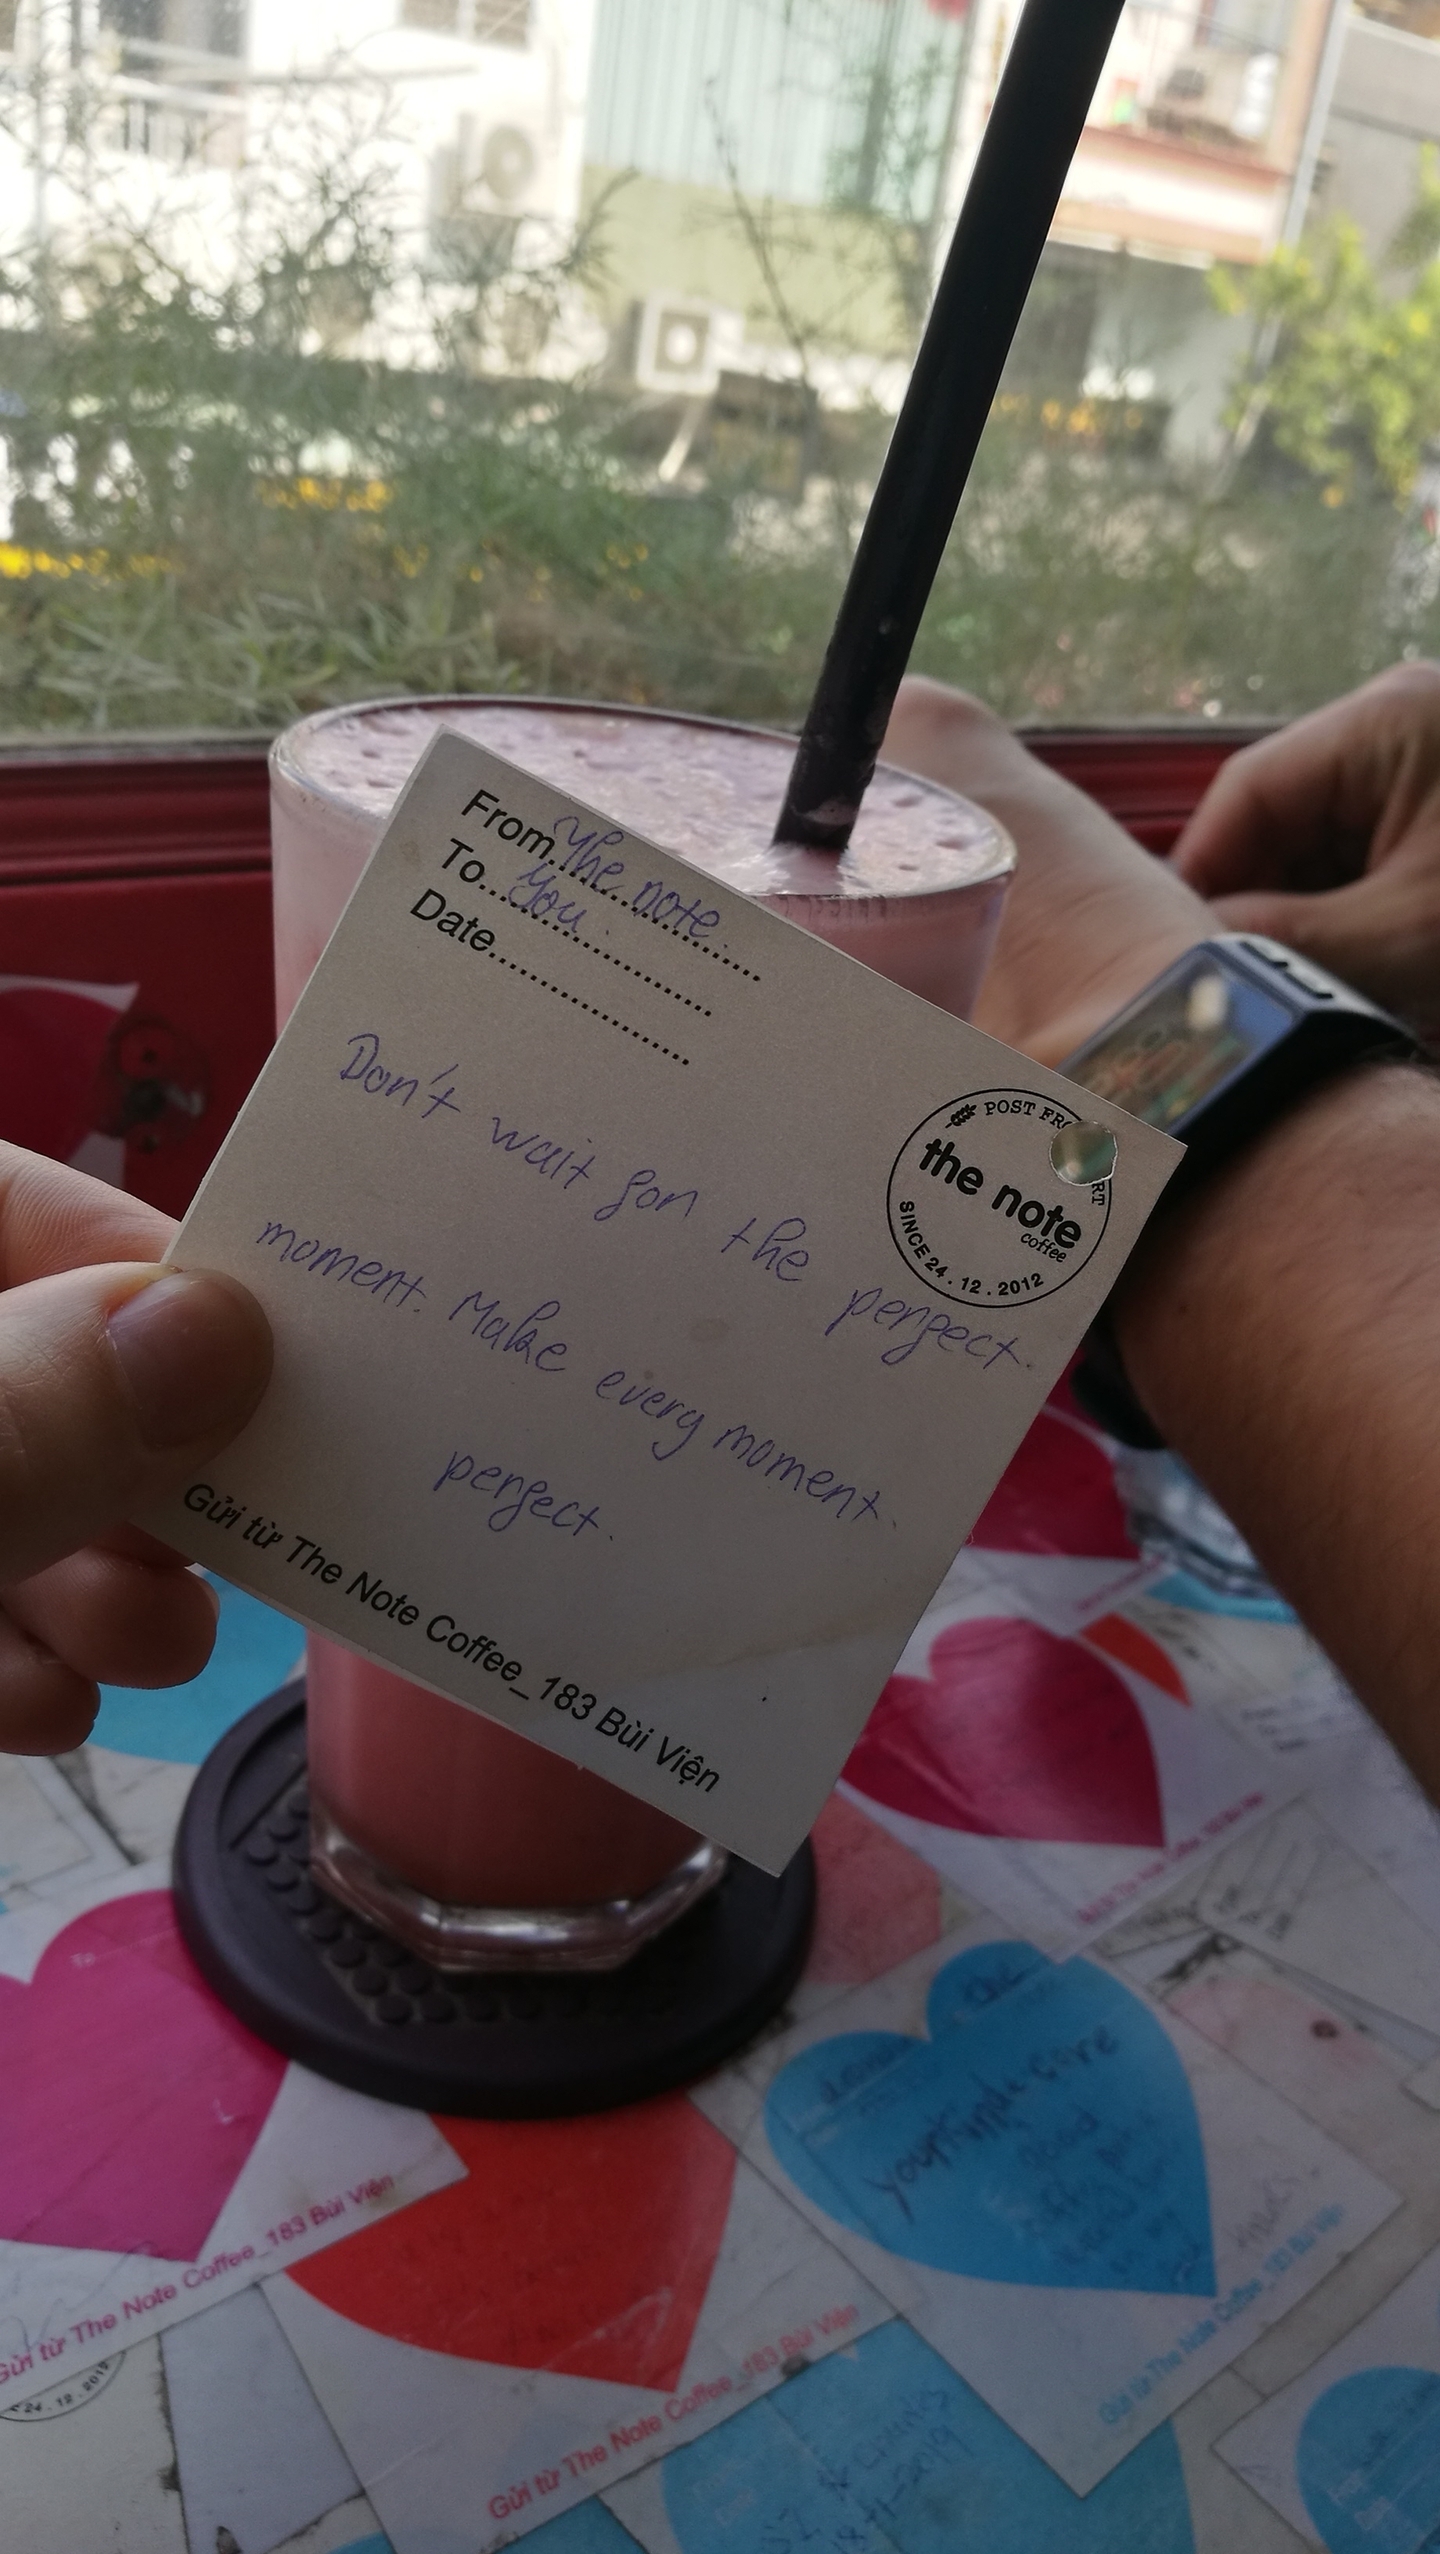 From The note.
To You.
Date
Don't wait for the perfect.
moment. Make every moment.
perfect.
POST FR
RT
the note
coffee
SINCE 24.12.2012
Gửi từ The Note Coffee_183 Bùi Viện
your kind care
Gửi từ The Note Coffee_183 Bùi Viện
Gửi từ The Note Coffee_183 Bùi Viện
Gửi từ The Note Coffee_183 Bùi Viện
24.12.2012